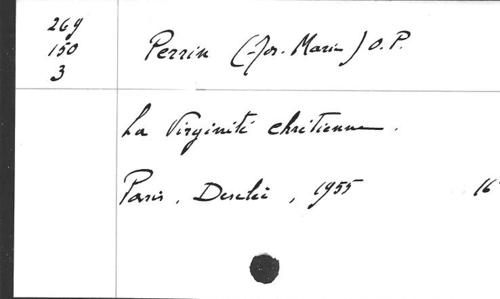 269
150
3
Perrin (Jos. Marie) O.P.
La Virginité chrétienne.
Paris, Desclée, 1955 16